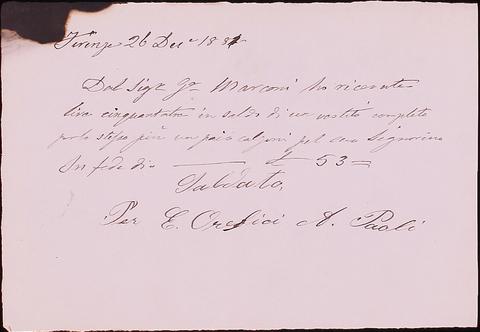 Firenze 26 Dec. 188
Dal Sigr Gn Marconi ho ricevuto
lire cinquantatre in saldo di un vestito completo
per lo stesso più un paio calzoni pel suo Signorino
In fede dico ——— £ 53 =
Saldato,
Per E. Orefici A. Paoli